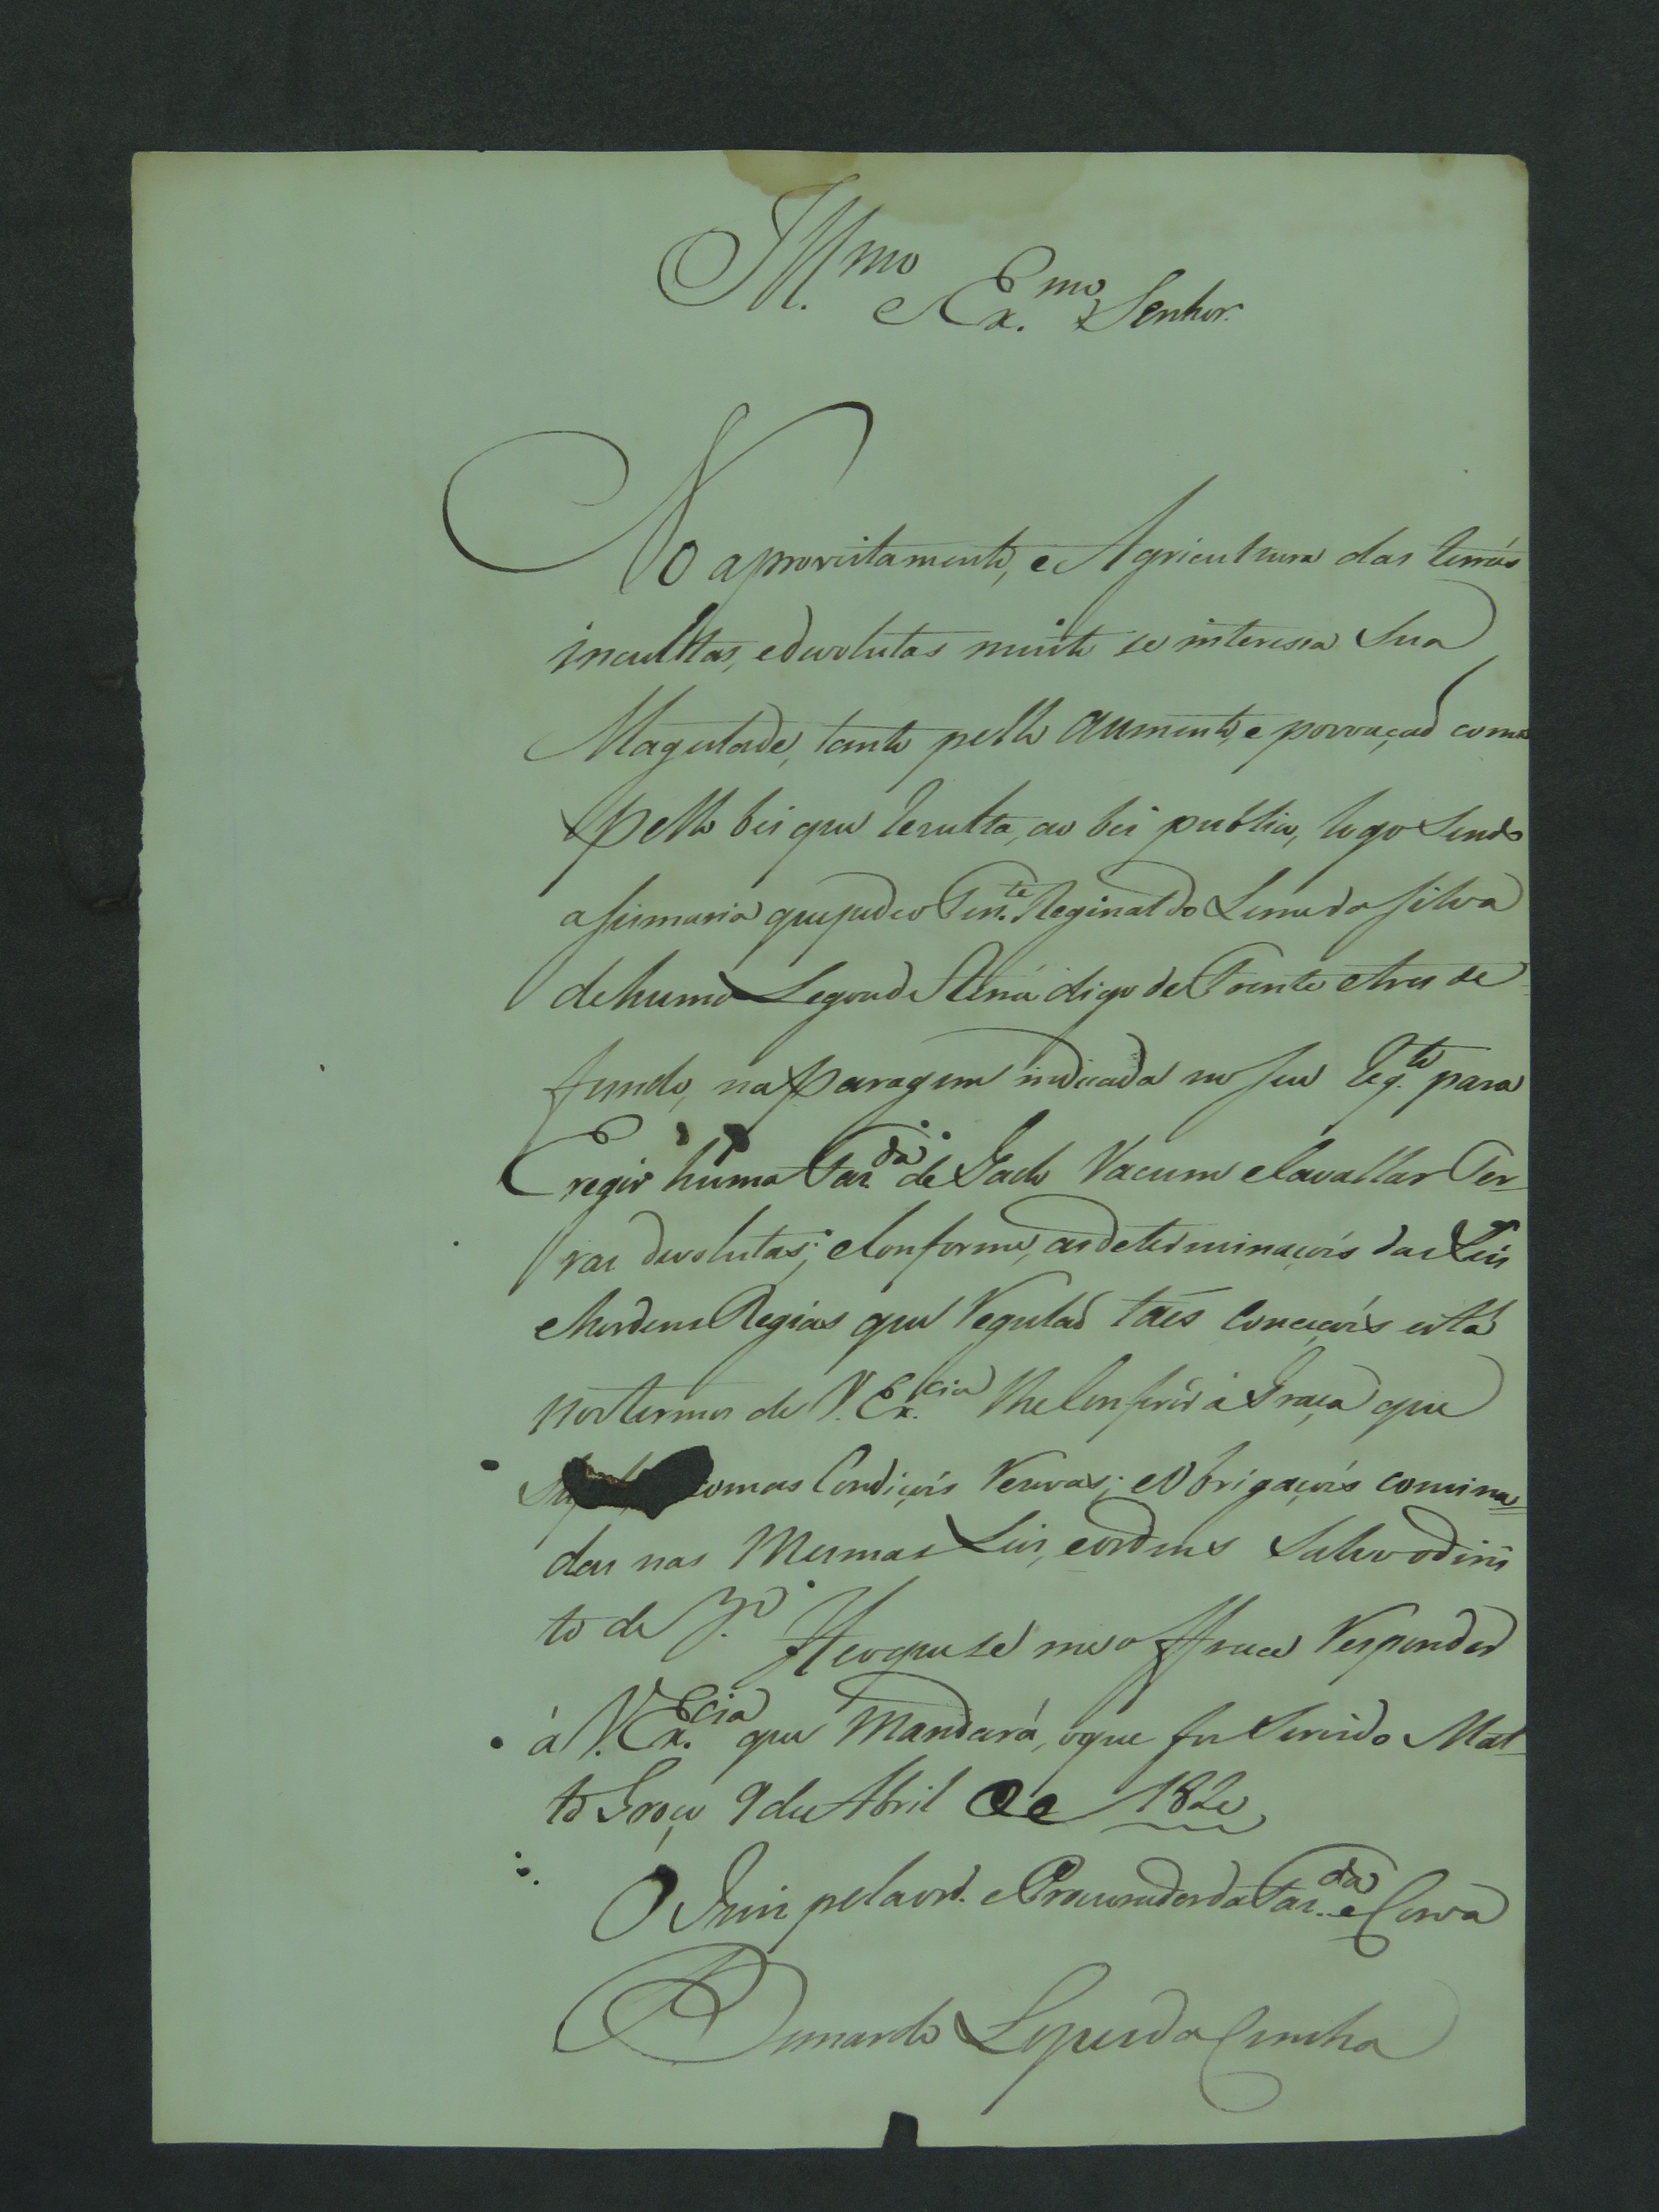 Ill.mo e Ex.mo Senhor.
No aproveitamento, e Agricultura das terrás
incultas, e devolutas muito se interessa Sua
Magestade, tanto pello aumento, e povoaçaó como
Pello bẽ que rezulta, ao bẽ publico, logo sendo
a sismaria que pede o Ten.te Reginaldo Leme da Silva
de huma Legoa de terrá digo de Frente e tres de
fundo, na Paragem indicada no seu req.to para
Eregir húma Faz.da de Gado Vacum e Cavallar Ter-
ras devolutas; e Conforme, as determinaçoís das Leis
e hordens Regias que regulaó taés Conceçoís está
nos termos de V. Ex.cia lhe Conferir a Graça que
Sup com as Condiçoís rezervas; e Obrigaçoís comina-
das nas Mesmas Leis, e ordens Salvo o direi
to de 3.º He o que se me offrece responder
á V. Ex.cia que Mandará, o que for Servido Mat-
to Groço 9 de Abril de 1820
O Juiz pela ord. e Procurador da Faz.da e Coroa
Bernardo Lopes da Cunha